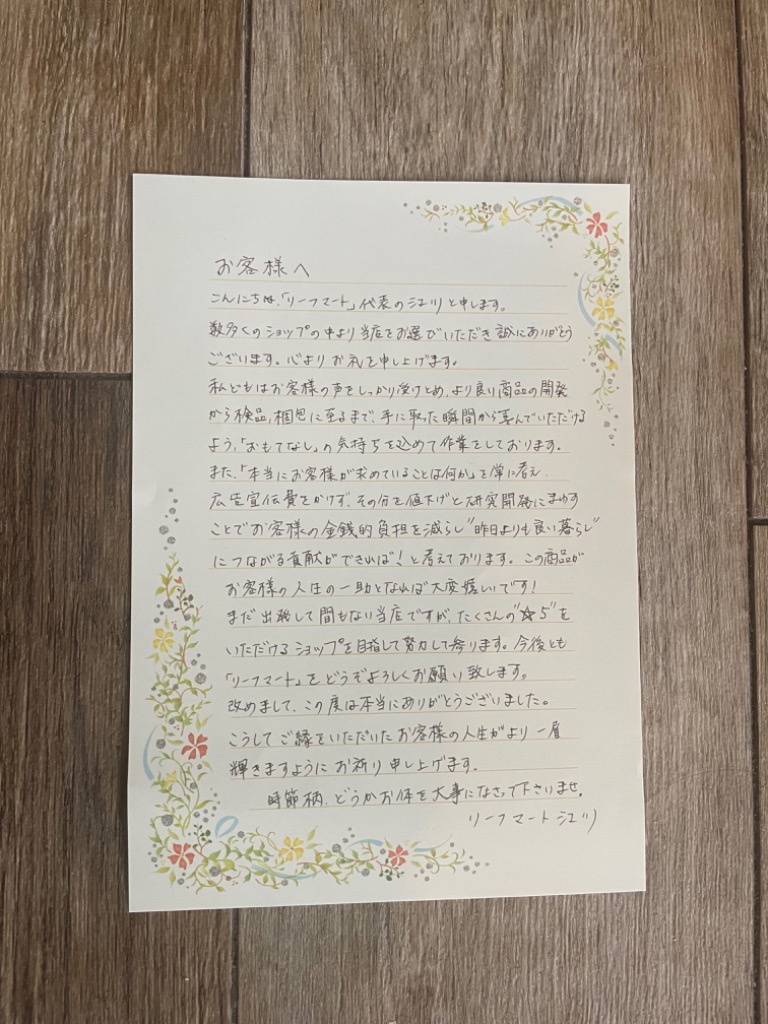 お客様へ
こんにちは、「リーフマート」代表の江ツリと申します。
数多くのショップの中より当店をお選びいただき誠にありがとう
ございます。心よりお礼を申し上げます。
私どもはお客様の声をしっかり受けとめ、より良い商品の開発
から検品、梱包に至るまで、手に取った瞬間から喜んでいただける
よう、「おもてなし」の気持ちを込めて作業をしております。
また、「本当にお客様が求めていることは何か」を常に考え、
広告宣伝費をかけず、その分を値下げと研究開発にまわす
ことでお客様の金銭的負担を減らし"昨日よりも良い暮らし"
につながる貢献ができれば!と考えております。この商品が
お客様の人生の一助となれば大変嬉しいです!
まだ出発して間もない当店ですが、たくさんの"☆5"を
いただけるショップを目指して努力して参ります。今後とも
「リーフマート」をどうぞよろしくお願い致します。
改めまして、この度は本当にありがとうございました。
こうしてご縁をいただいたお客様の人生がより一層
輝きますようにお祈り申し上げます。
時節柄、どうかお体を大事になさって下さいませ。
リーフマート